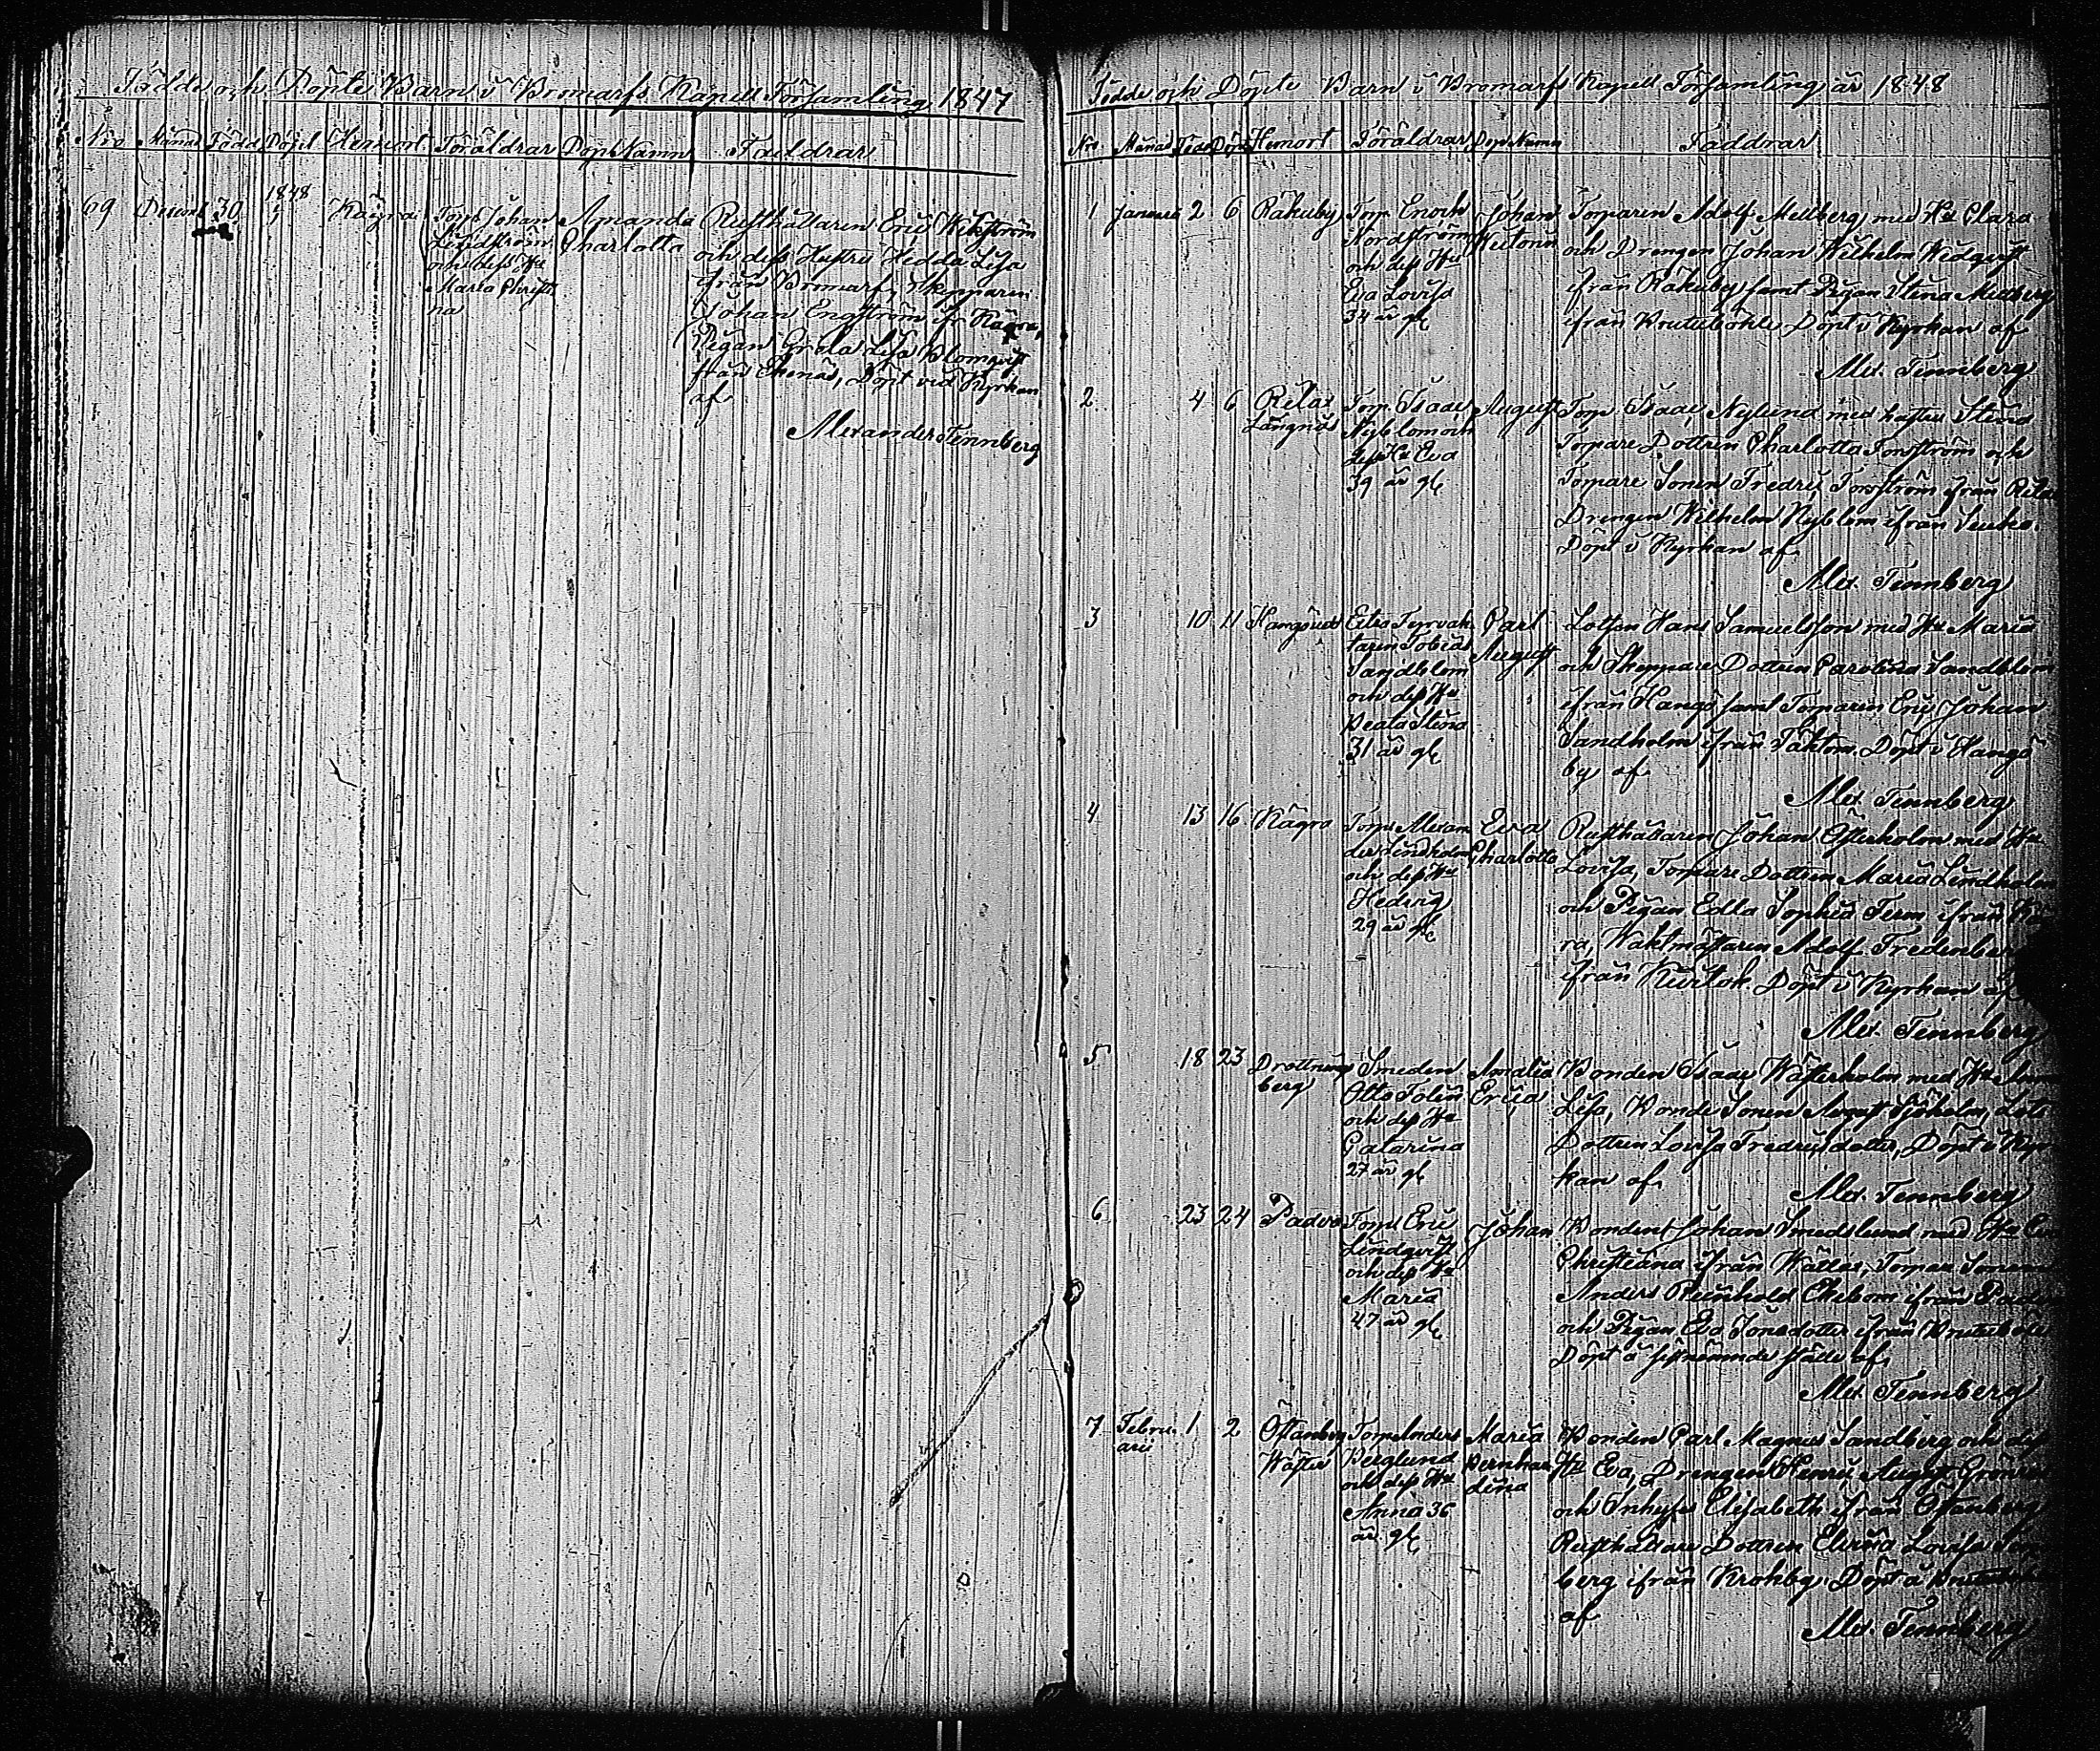 Födde och Döpte Barn i Bromarfs Kapell Församling 1847
Nro Månad Född Döpt Hemort Föräldrar Dop Namn Faddrar
1848
69 Decemb 30 1 Kägra Torp. Johan Amanda Rusthållaren Eric Wikström
Lindström Charlotta och dess Hustru Hedda Lisa
och dess Hu ifrån Bromarf, Skepparen
Maria Christi Johan Engström ifr Kägra,
na Pigan Greta Lisa Blomqvist
från Ekenäs, Döpt vid Kyrkan
af
Alexander Tennberg
Födde och Döpte Barn i Bromarfs Kapell Församling år 1848
Nro Månad Född Döpt Hemort Föräldrar Dop Namn Faddrar
1 Januarii 2 6 Räkuby Torp. Enoch Johan Torparen Adolf Mellberg med Hu Clara
Nordström och Drengen Johan Wilhelm Widqvist
och dess Hu ifrån Räkuby samt Pigan Stina Mellberg
Eva Lovisa ifrån Knutsböhle Döpt i Kyrkan af
34 år gl
Alex. Tennberg
2 4 6 Rilax Torp. Isaac August Torp. Isaac Nylund med hustru Stina
Långnäs Nyblom och Torpare Dottren Charlotta Forsström och
dess Hu Eva Torpare Sonen Fredric Forsström ifrån Rilax
39 år gl Drengen Wilhelm Nyblom ifrån
Döpt i Kyrkan af
Alex. Tennberg
3 10 11 Hangöudd Fyrvak Carl Lotsen Hans Samuelsson med Hu Maria
taren Tobias August och Skeppare Dottren Carolina Sandblom
Sandblom ifrån Hangö samt Torparen Eric Johan
och dess Hu Sandholm ifrån Täktom. Döpt i Hangö
Beata Stina by af
31 år gl
Alex. Tennberg
4 13 16 Kägra Torp. Alexan Eva Rusthållaren Johan Österholm med Hu
der Lindholm Charlotta Lovisa, Torpare Dottren Maria Lindholm
och dess Hu och Pigan Edla Sophia ifrån
Hedvig ra, Waktmästaren Adolf Fredenberg
29 år gl ifrån Döpt i Kyrkan af
Alex. Tennberg
5 18 23 Drottnings Smeden Amalia Bonden Isaac Westerholm med Hu
berg Otto Folin Erica Lisa, Bonde Sonen August Sjöholm, Lots
och dess Hu Dottren Lovisa Fredricsdotter, Döpt i Kyr
Catarina kan af
27 år gl
Alex. Tennberg
6 23 24 Padva Torp. Eric Johan Bonden Johan Smedslund med Hu
Lindqvist Christiana ifrån Wättlax, Torpare Sonen
och dess Hu Anders Reinhold Ekebom ifrån Padva
Maria och Pigan Eva Jonsdotter ifrån Knutsböle
47 år gl Döpt å sistnämnde ställe af
Alex. Tennberg
7 Febru 1 2 Östanberg Torp. Anders Maria Bonden Carl Magnus Sandberg och dess
arii Wäster Berglund Bernhar Hu Eva, Drengen Henric August Grönroos
och dess Hu dina och Inhyses Elisabeth ifrån Östanberg
Anna 36 Rusthållare Dottren Lovisa
år gl berg ifrån Krokby. Döpt å
af
Alex. Tennberg